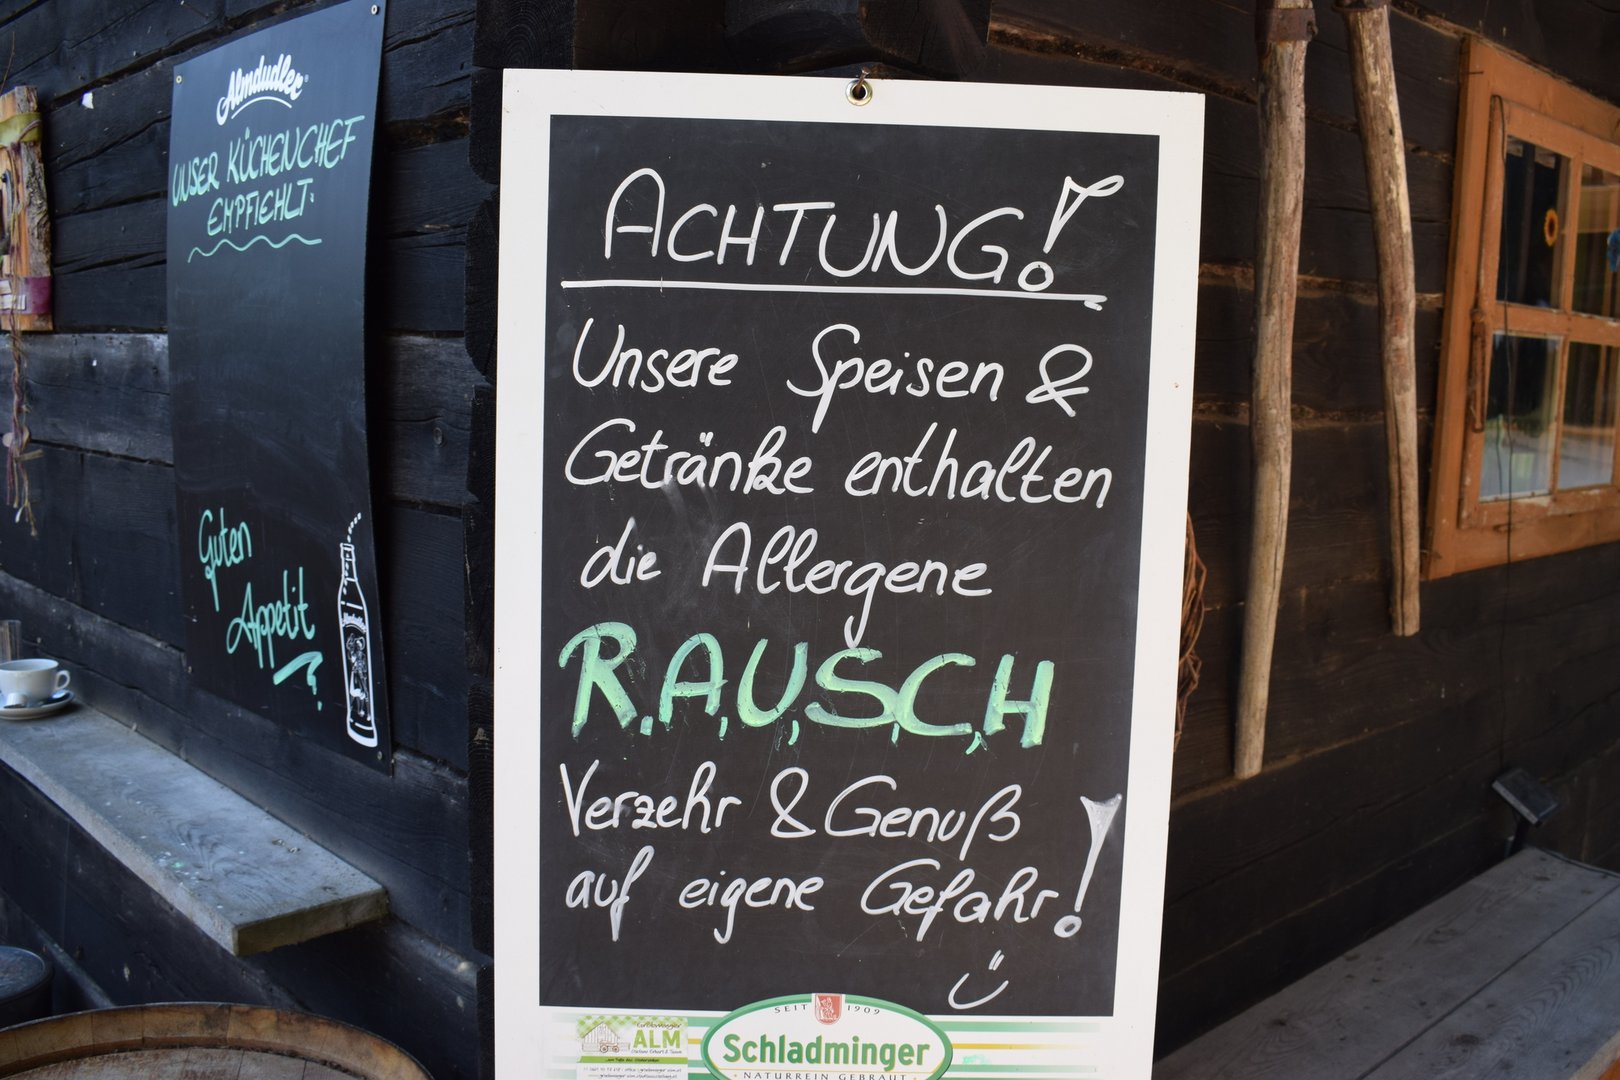 Almdudler
UNSER KÜCHENCHEF
EMPFIEHLT:
Guten
Appetit
Almdudler
ACHTUNG!
Unsere Speisen &
Getränke enthalten
die Allergene
R,A,U,S,C,H
Verzehr & Genuß
auf eigene Gefahr!
SEIT 1909
Schladminger
NATURREIN GEBRAUT
ALM